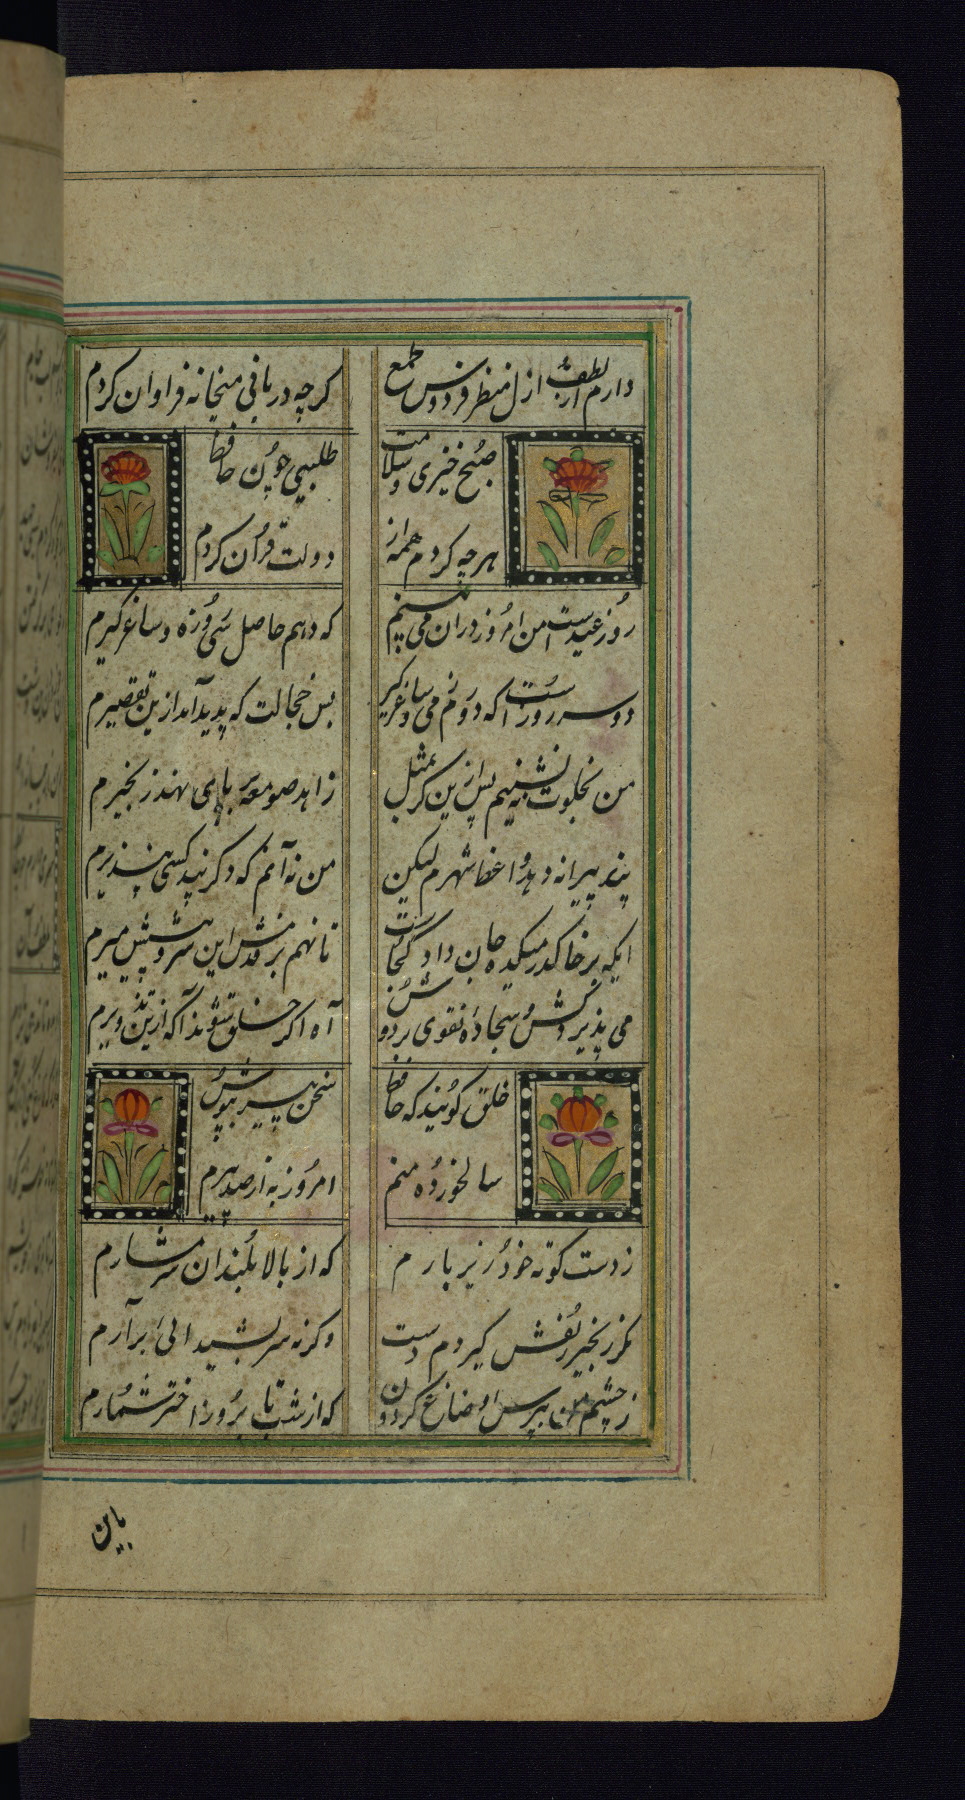 دارم از لطف ازل منظر فردوس طمع
کرچه دربانی میخانه فراوان کردم
صبح خیزی و سلامت
طلبیی چون حافظ
هر چه کردم همه از
دولت قرآن کردم
روز عیدست من امروز در آن می بینم
که دهم حاصل سی روزه و ساغر کیرم
دو سه روزست که دورم ز می و ساغر کیر
بس خجالت که پدید آمد ازین تقصیرم
من بخلوت نشینم پس ازین کر بمثل
زاهد صومعه بر پای نهد زنجیرم
پند پیرانه دهد واعظ شهرم لیکن
من نه آنم که دکر پند کسی بپذیرم
ایکه بر خاک در میکده جان داد کجاست
تا نهم بر قدمش این سر و پیشش میرم
می بذیر کش و سجاده تقوی بر دوش
آه اکر خلق شوند آکه ازین تزویرم
خلق کویند که حافظ
سخن پیر نیوش
سالخورده منم
امروز به از صد پیرم
ز دست کوته خود زیر بارم
که از بالا بلندان شرمسارم
مکر زنجیر زلفش کیردم دست
وکرنه سر بشیدائی برآرم
ز چشم من بپرس اوضاع کردون
که از شب تا بروز اختر شمارم
باین